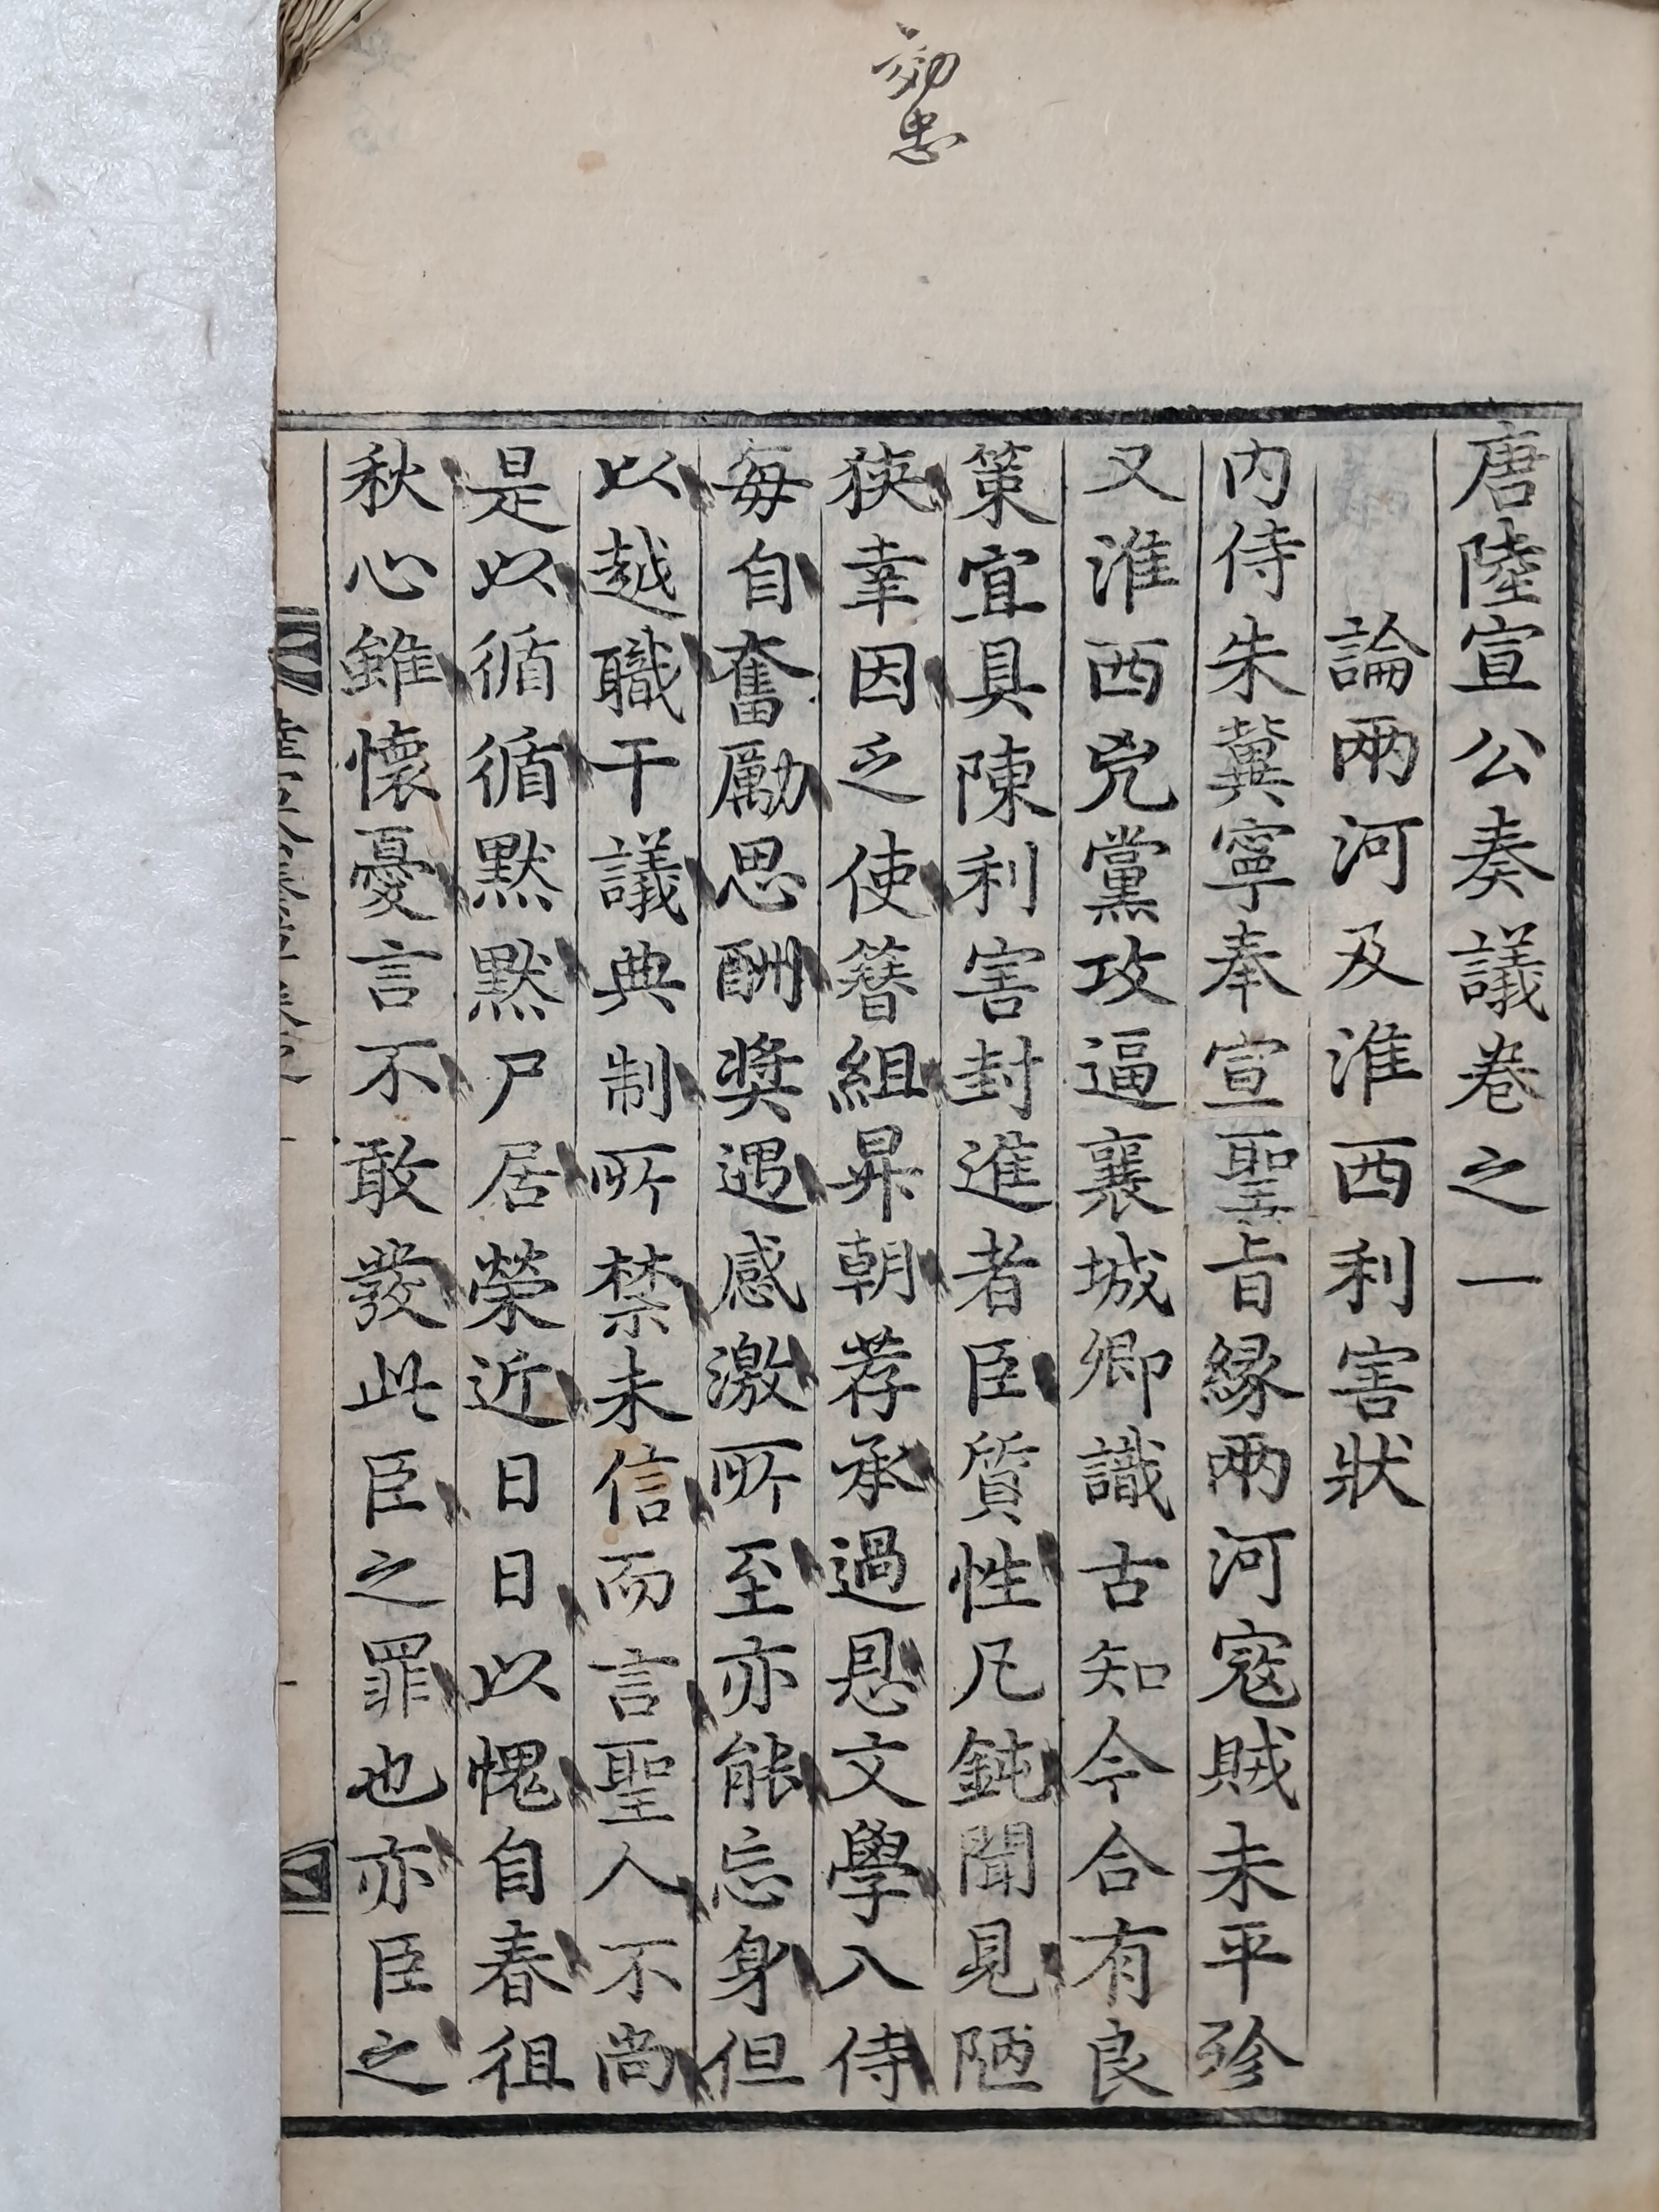 効忠
唐陸宣公奏議卷之一
論兩河及淮西利害狀
內侍朱冀寧奉宣聖旨緣兩河寇賊未平殄
又淮西兇黨攻逼襄城卿識古知今合有良
策宜具陳利害封進者臣質性凡鈍聞見陋
狹幸因乏使簪組昇朝荐承過恩文學入侍
每自奮勵思酬奬遇感激所至亦能忘身但
以越職干議典制所禁未信而言聖人不尚
是以循循默默尸居榮近日日以愧自春徂
秋心雖懷憂言不敢發此臣之罪也亦臣之